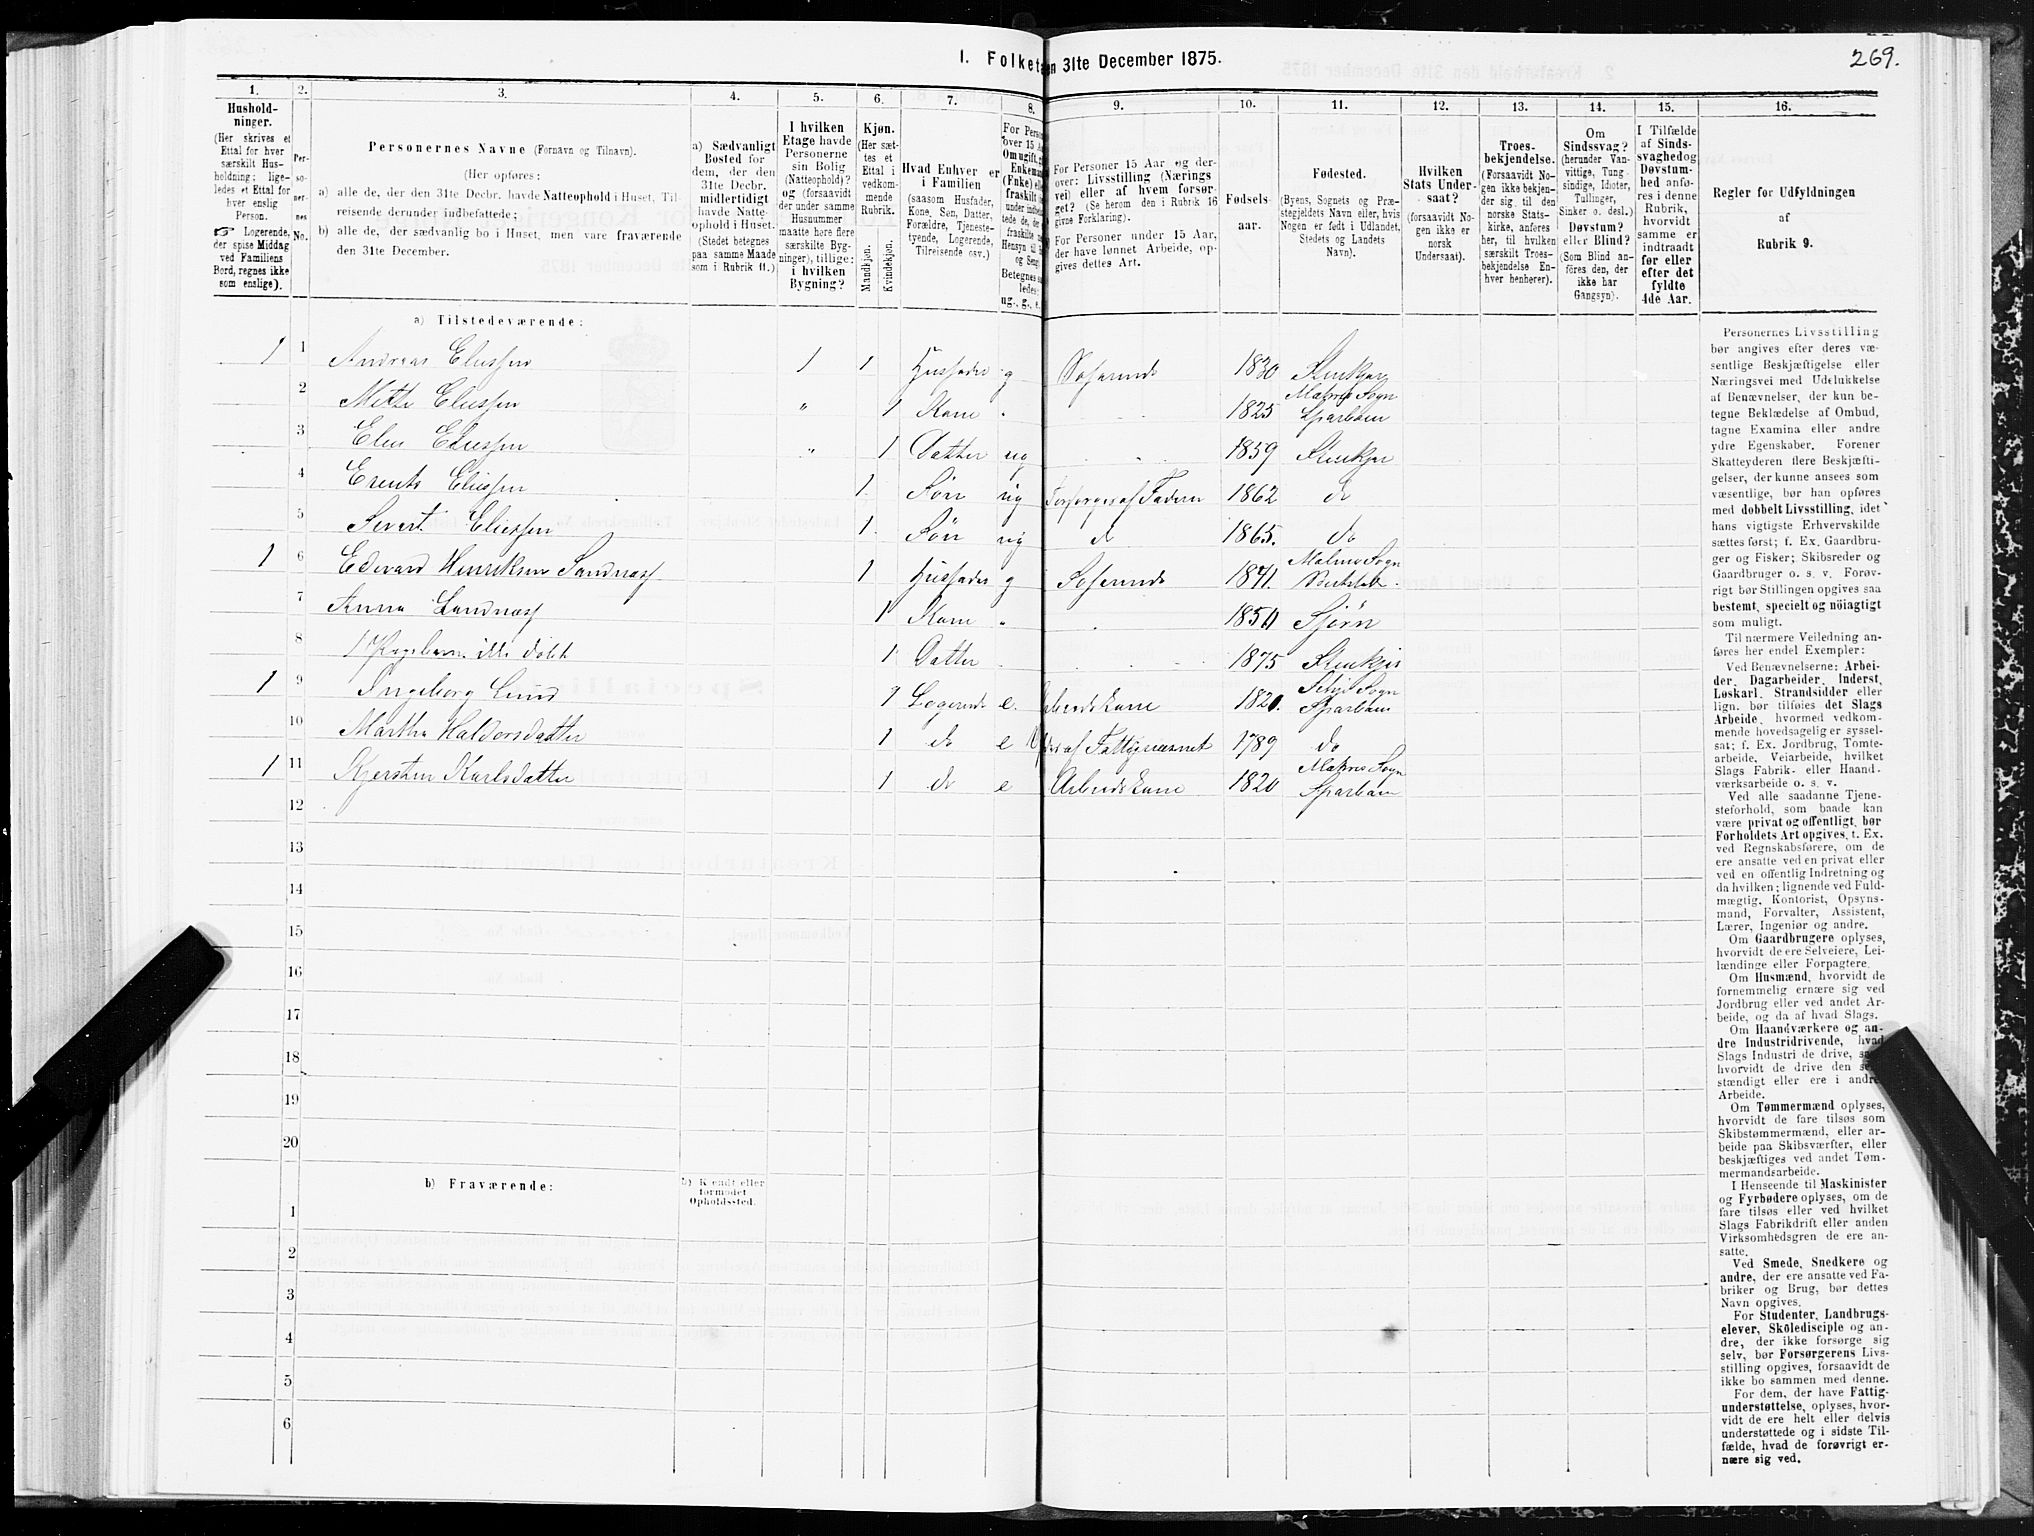 269.
1. Folketæ
n 31te December 1875.
1. 2. 3. 4. 5. 6. 7. 8. 9. 10. 11. 12. 13. 14. 15. 16.
Hushold-
ninger.
(Her skrives et
Ettal for hver
særskilt Hus-
holdning; lige-
ledes et Ettal for
hver enslig
Person.
☞ Logerende,
der spise Middag
ved Familiens
Bord, regnes ikke
som enslige).
Per-
so-
ner-
nes
No.
Personernes Navne (Fornavn og Tilnavn).
(Her opføres:
a) alle de, der den 31te Decbr. havde Natteophold i Huset, Til-
reisende derunder indbefattede;
b) alle de, der sædvanlig bo i Huset, men vare fraværende
den 31te December.
a) Sædvanligt
Bosted for
dem, der den
31te Decbr.
midlertidigt
havde Natte-
ophold i Huset.
(Stedet betegnes
paa samme Maade
som i Rubrik 11.)
I hvilken
Etage havde
Personerne
sin Bolig
(Natteophold)?
og (forsaavidt
der under samme
Husnummer
maatte høre flere
særskilte Byg-
ninger), tillige:
i hvilken
Bygning?
Kjøn.
(Her sæt-
tes et
Ettal i
vedkom-
mende
Rubrik.
Mandkjøn.
Kvindekjøn.
Hvad Enhver er
i Familien
(saasom Husfader,
Kone, Søn, Datter,
Forældre, Tjeneste-
tyende, Logerende,
Tilreisende osv.)
For Perso
over 15 Aa
Om ugift, g
Enkema
(Enke) ell
fraskilt
under indbe
tede de, de
fraskilte
Hensyn til B
og Seng
Betegnes s
ledes:
ug., g., e.
For Personer 15 Aar og der-
over: Livsstilling (Nærings
vei) eller af hvem forsør-
get? (Se herom den i Rubrik 16
givne Forklaring).
For Personer under 15 Aar,
der have lønnet Arbeide, op-
gives dettes Art.
Fødsels-
aar.
Fødested.
(Byens, Sognets og Præ-
stegjeldets Navn eller, hvis
Nogen er født i Udlandet,
Stedets og Landets
Navn).
Hvilken
Stats Under-
saat?
(forsaavidt No-
gen ikke er
norsk
Undersaat).
Troes-
bekjendelse.
(Forsaavidt No-
gen ikke bekjen-
der sig til den
norske Stats-
kirke, anføres
her, til hvilken
særskilt Troes-
bekjendelse En-
hver henhører).
Om
Sindssvag?
(herunder Van-
vittige, Tung-
sindige, Idioter,
Tullinger,
Sinker o. desl.)
Døvstum?
eller Blind?
(Som Blind an-
føres den, der
ikke har
Gangsyn).
I Tilfælde
af Sinds-
svaghed og
Døvstum-
hed anfø-
res i denne
Rubrik,
hvorvidt
samme er
indtraadt
før eller
efter det
fyldte
4de Aar.
Regler for Udfyldningen
af
Rubrik 9.
a) Tilstedeværende:
1 1 Andreas Eliessen 1 1 Husfader g 1830 Stenkjær
2 Mette Eliessen " 1 Kone " 1825 Sparboen
3 Elen Eliessen " 1 Datter ug 1859 Stenkjær
4 Erents Eliessen 1 Søn ug Forsørges af Faderen 1862 do
5 Severt Eliessen 1 Søn ug d 1865. do
1 6 Edevard Henriksen Sandnæss 1 Husfader g 1841.
7 Anna Sandnæss 1 Kone " 1850
8 1 Pigebarn ikke døbt 1 Datter 1875 Stenkjær
1 9 Ingeborg Lund 1 Logerende e. Arbeidskone 1820. Sparboen
10 Martha Haldorsdatter 1 do e af Fattigvæsnet 1789 do
1 11 Kjersten Karlsdatter 1 do e Arbeidskone 1820 Sparboen
12
13
14
15
16
17
18
19
20
b) Fraværende:
b) Kjendt eller
formodet
Opholdssted.
1
2
3
4
5
6
Personernes Livsstilling
bør angives efter deres væ-
sentlige Beskjæftigelse eller
Næringsvei med Udelukkelse
af Benævnelser, der kun be-
tegne Beklædelse af Ombud,
tagne Examina eller andre
ydre Egenskaber. Forener
Skatteyderen flere Beskjæfti-
gelser, der kunne ansees som
væsentlige, bør han opføres
med dobbelt Livsstilling, idet
hans vigtigste Erhvervskilde
sættes først; f. Ex. Gaardbru-
ger og Fisker; Skibsreder og
Gaardbruger o. s. v. Forøv-
rigt bør Stillingen opgives saa
bestemt, specielt og nöiagtigt
som muligt.
Til nærmere Veiledning an-
føres her endel Exempler:
Ved Benævnelserne: Arbei-
der, Dagarbeider, Inderst,
Løskarl, Strandsidder eller
lign. bør tilføies det Slags
Arbeide, hvormed vedkom-
mende hovedsagelig er syssel-
sat; f. Ex. Jordbrug, Tomte-
arbeide, Veiarbeide, hvilket
Slags Fabrik- eller Haand-
værksarbeide o. s. v.
Ved alle saadanne Tjene-
steforhold, som baade kan
være privat og offentligt, bør
Forholdets Art opgives, t. Ex.
ved Regnskabsførere, om de
ere ansatte ved en privat eller
ved en offentlig Indretning og
da hvilken; lignende ved Fuld-
mægtig, Kontorist, Opsyns-
mand, Forvalter, Assistent,
Lærer, Ingeniør og andre.
Om Gaardbrugere oplyses,
hvorvidt de ere Selveiere, Lei-
lændinge eller Forpagtere.
Om Husmænd, hvorvidt de
fornemmelig ernære sig ved
Jordbrug eller ved andet Ar-
beide, og da af hvad Slags.
Om Haandværkere og an-
dre Industridrivende, hvad
Slags Industri de drive, sa
hvorvidt de drive den se
stændigt eller ere i andre
Arbeide.
Om Tømmermænd oplyses,
hvorvidt de fare tilsøs som
Skibstømmermænd, eller ar-
beide paa Skibsværfter, eller
beskjæftiges ved andet Tøm-
mermandsarbeide.
I Henseende til Maskinister
og Fyrbødere oplyses, om de
fare tilsøs eller ved hvilket
Slags Fabrikdrift eller anden
Virksomhedsgren de ere an-
satte.
Ved Smede, Snedkere og
andre, der ere ansatte ved Fa-
briker og Brug, bør dettes
Navn opgives.
For Studenter, Landbrugs-
elever, Skôledisciple og an-
dre, der ikke forsørge sig
selv, bør Forsørgerens Livs-
stilling opgives, forsaavidt de
ikke bo sammen med denne.
For dem, der have Fattig-
understøttelse, oplyses, hvor-
vidt de ere helt eller delvis
understøttede og i sidste Til-
fælde, hvad de forøvrigt er-
nære sig ved.